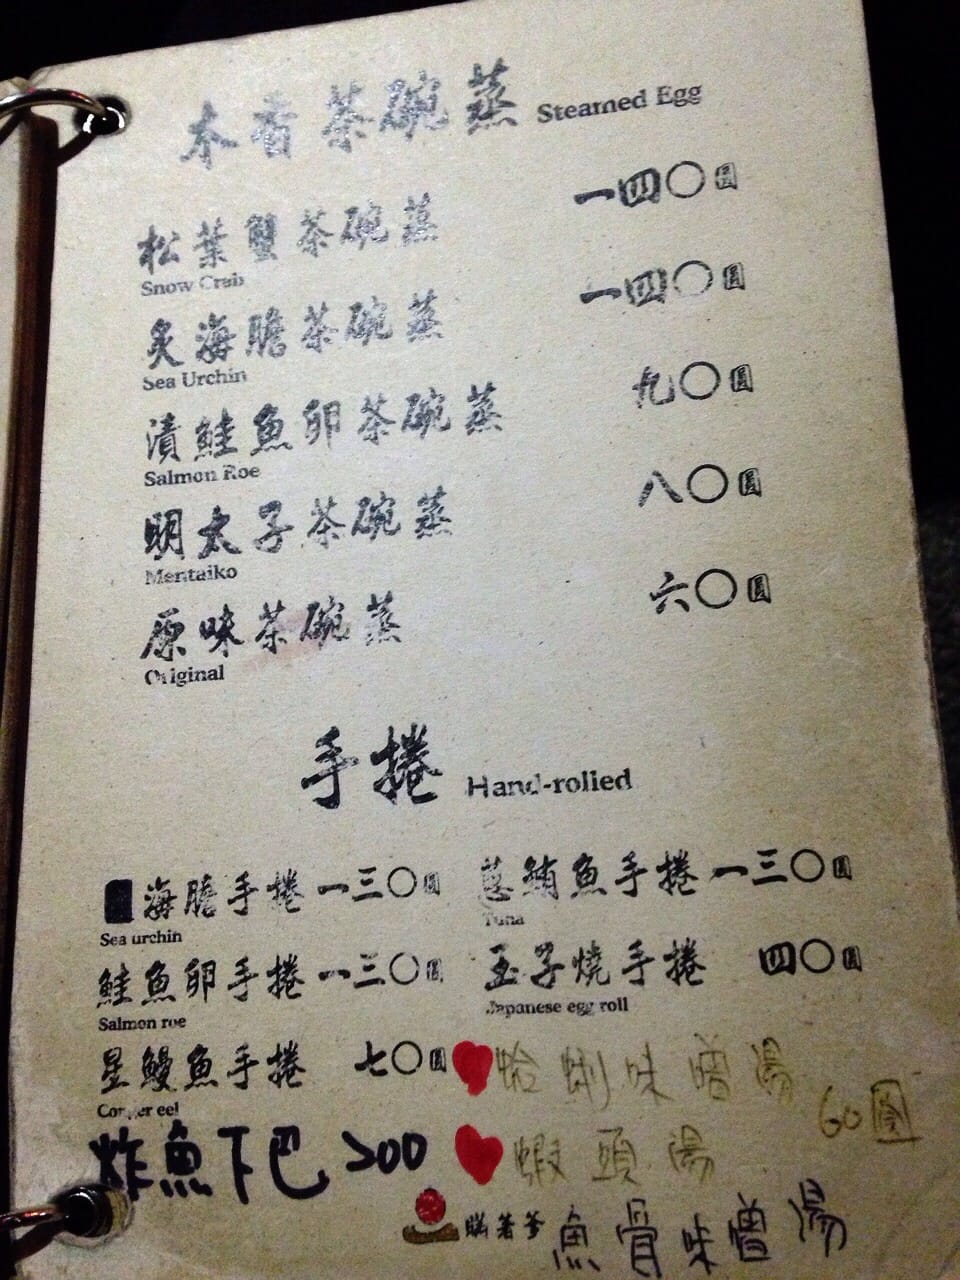 木香茶碗蒸 Steamed Egg
松葉蟹茶碗蒸 一四〇圓
Snow Crab
炙海膽茶碗蒸 一四〇圓
Sea Urchin
漬鮭魚卵茶碗蒸 九〇圓
Salmon Roe
明太子茶碗蒸 八〇圓
Mentaiko
原味茶碗蒸 六〇圓
Original
手捲 Hand-rolled
海膽手捲 一三〇圓
Sea urchin
鮭魚卵手捲 一三〇圓
Salmon roe
星鰻魚手捲 七〇圓
Conger eel
炸魚下巴 200
蔥鮪魚手捲 一三〇圓
Tuna
玉子燒手捲 四〇圓
Japanese egg roll
蛤蜊味噌湯
60圓
蝦頭湯
魚骨味噌湯